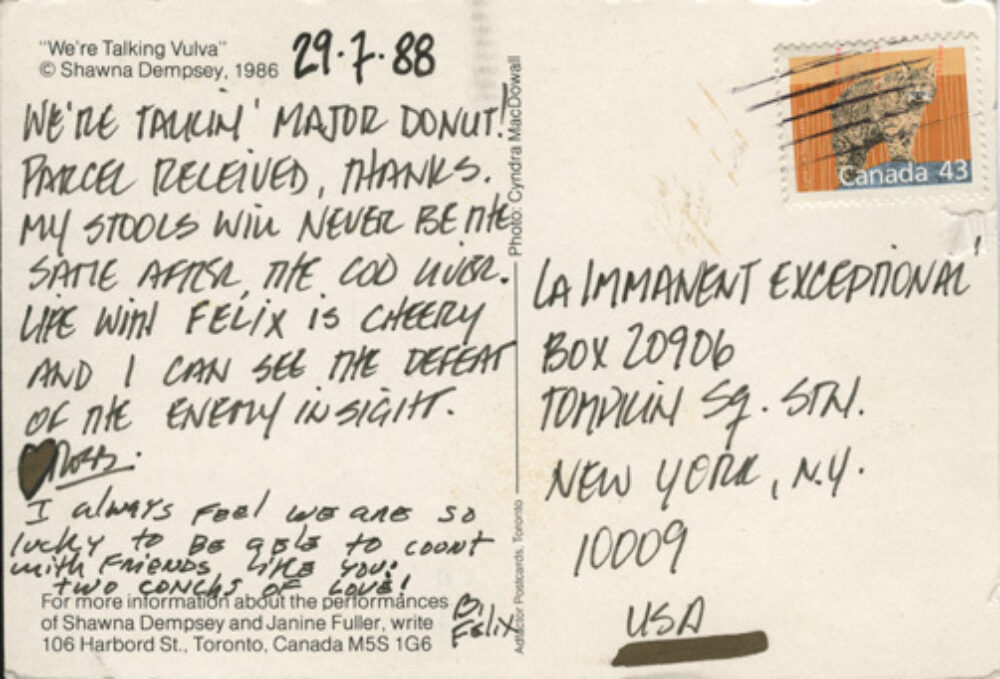 "We're Talking Vulva"
© Shawna Dempsey, 1986
29·7·88
WE'RE TALKIN' MAJOR DONUT!
PARCEL RECEIVED, THANKS.
MY STOOLS WILL NEVER BE THE
SAME AFTER THE COD LIVER.
LIFE WITH FELIX IS CHEERY
AND I CAN SEE THE DEFEAT
OF THE ENEMY IN SIGHT.
I always Feel we are so
lucky to Be able to count
with Friends like you:
two conchs of love!
Felix
For more information about the performances
of Shawna Dempsey and Janine Fuller, write
106 Harbord St., Toronto, Canada M5S 1G6
Photo: Cyndra MacDowall
Postcards, Toronto
Canada 43
LA IMMANENT EXCEPTIONAL
BOX 20906
TOMPKIN SQ. STN.
NEW YORK, N.Y.
10009
USA